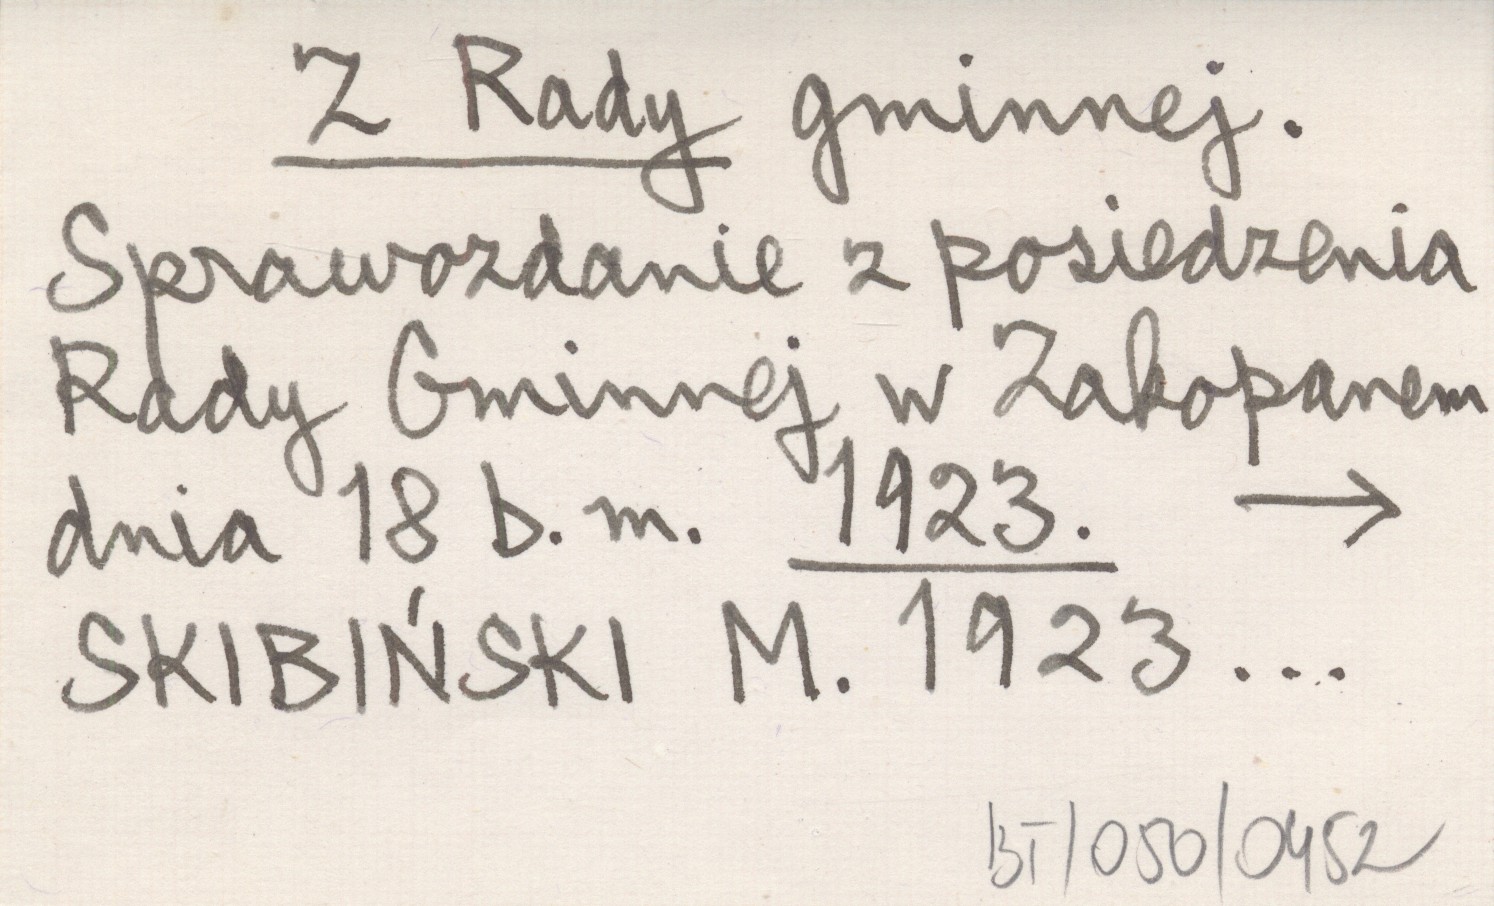 Z Rady gminnej.
Sprawozdanie z posiedzenia
Rady Gminnej w Zakopanem
dnia 18 b. m. 1923. →
SKIBIŃSKI M. 1923...
BT/050/0452